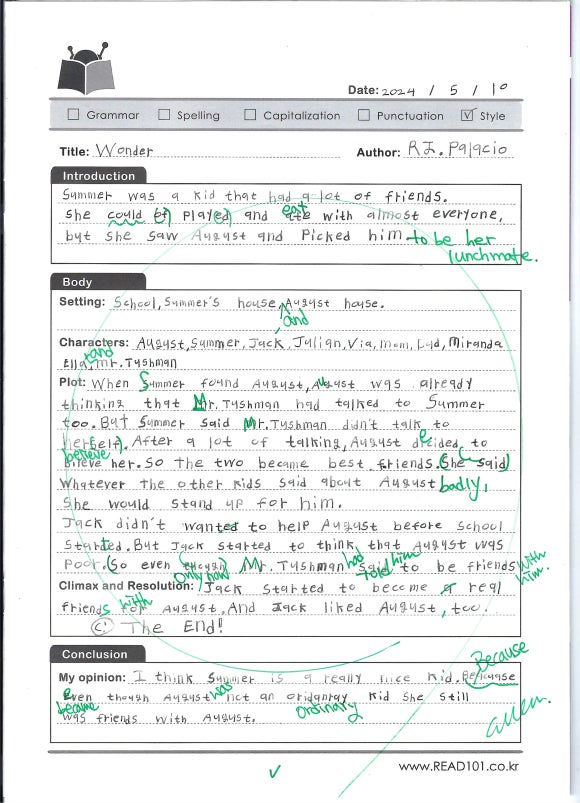 Date: 2024 / 5 / 10
Grammar Spelling Capitalization Punctuation Style
Title: Wonder Author: R.J. Palacio
Introduction
Summer was a kid that had a lot of friends.
eat
She could of played and ate with almost everyone,
but she saw August and Picked him to be her
lunchmate.
Body
Setting: School, Summer's house, August house.
and
Characters: August, Summer, Jack, Julian, Via, mom, Dad, Miranda
and
Ella, mr. Tushman
Plot: When Summer found August, August was already
thinking that Mr. Tushman had talked to Summer
too. But Summer said Mr. Tushman didn't talk to
her(self). After a lot of talking, August decided to
believe
bileve her. So the two became best friends. (She said)
Whatever the other kids said about August badly,
She would stand up for him.
Jack didn't wanted to help August before school
Started. But Jack started to think that August was
Poor. (So even though) Mr. Tushman said to be friends with
Only now had told him him.
Climax and Resolution: Jack started to become a real
with
friends for August, And Jack liked August, too.
The End!
Conclusion
Because
My opinion: I think Summer is a really nice kid. Beacuase
was
Even though August not an oridanray kid she still
became ordinary
was friends with August.
www.READ101.co.kr